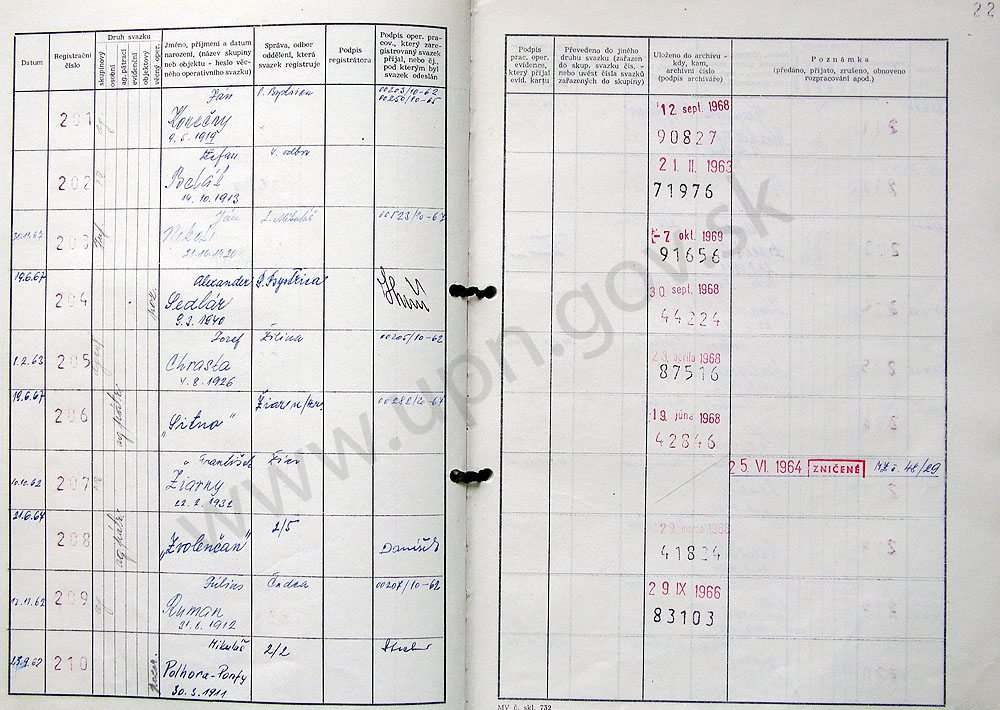 22
Datum
Registrační
číslo
Druh svazku
skupinový
osobní
ag.-pátrací
evidenční
objektový
věcný oper.
Jméno, příjmení a datum
narození, (název skupiny
neb objektu - heslo věc-
ného operativního svazku)
Správa, odbor
oddělení, která
svazek registruje
Podpis
registrátora
Podpis oper. pra-
cov., který zare-
gistrovaný svazek
přijal, nebo čj.,
pod kterým byl
svazek odeslán
Podpis
prac. oper.
evidence,
který přijal
evid. kartu
Převedeno do jiného
druhu svazku (zařazen
do skup. svazku čís. -
nebo uvést čísla svazků
zařazených do skupiny)
Uloženo do archivu -
kdy, kam,
archivní číslo
(podpis archiváře)
Poznámka
(předáno, přijato, zrušeno, obnoveno
rozpracování apod.)
201
Ján
Konečný
9.5.1919
00203/10-62
00250/10-65
12 sept. 1968
90827
202
Štefan
14.10.1913
4. odbor
21. II. 1963
71976
30.11.67
203
Ján
21.10.1920
L. Mikuláš
00523/10-67
-7 okt. 1969
91656
19.6.67
204
Alexander
Sedlár
9.3.1940
B. Bystrica
30. sept. 1968
44224
1.2.63
205
Jozef
Chrasta
4.8.1926
Žilina
00205/10-62
23. apríla 1968
87516
19.6.67
206
ag. pátr.
„Sitno"
19. júna 1968
42846
10.10.62
207
František
Žiarny
22.2.1932
Žiar
25. VI. 1964
ZNIČENÉ
MZ č. 48/29
21.6.67
208
ag. pátr.
„Zvolenčan"
2/5
Daníšek
41824
12.11.62
209
Július
Ruman
21.8.1912
Čadca
00207/10-62
29. IX 1966
83103
210
Mikuláš
Pothora-Ponfy
30.3.1911
2/2
MV č. skl. 732
www.upn.gov.sk